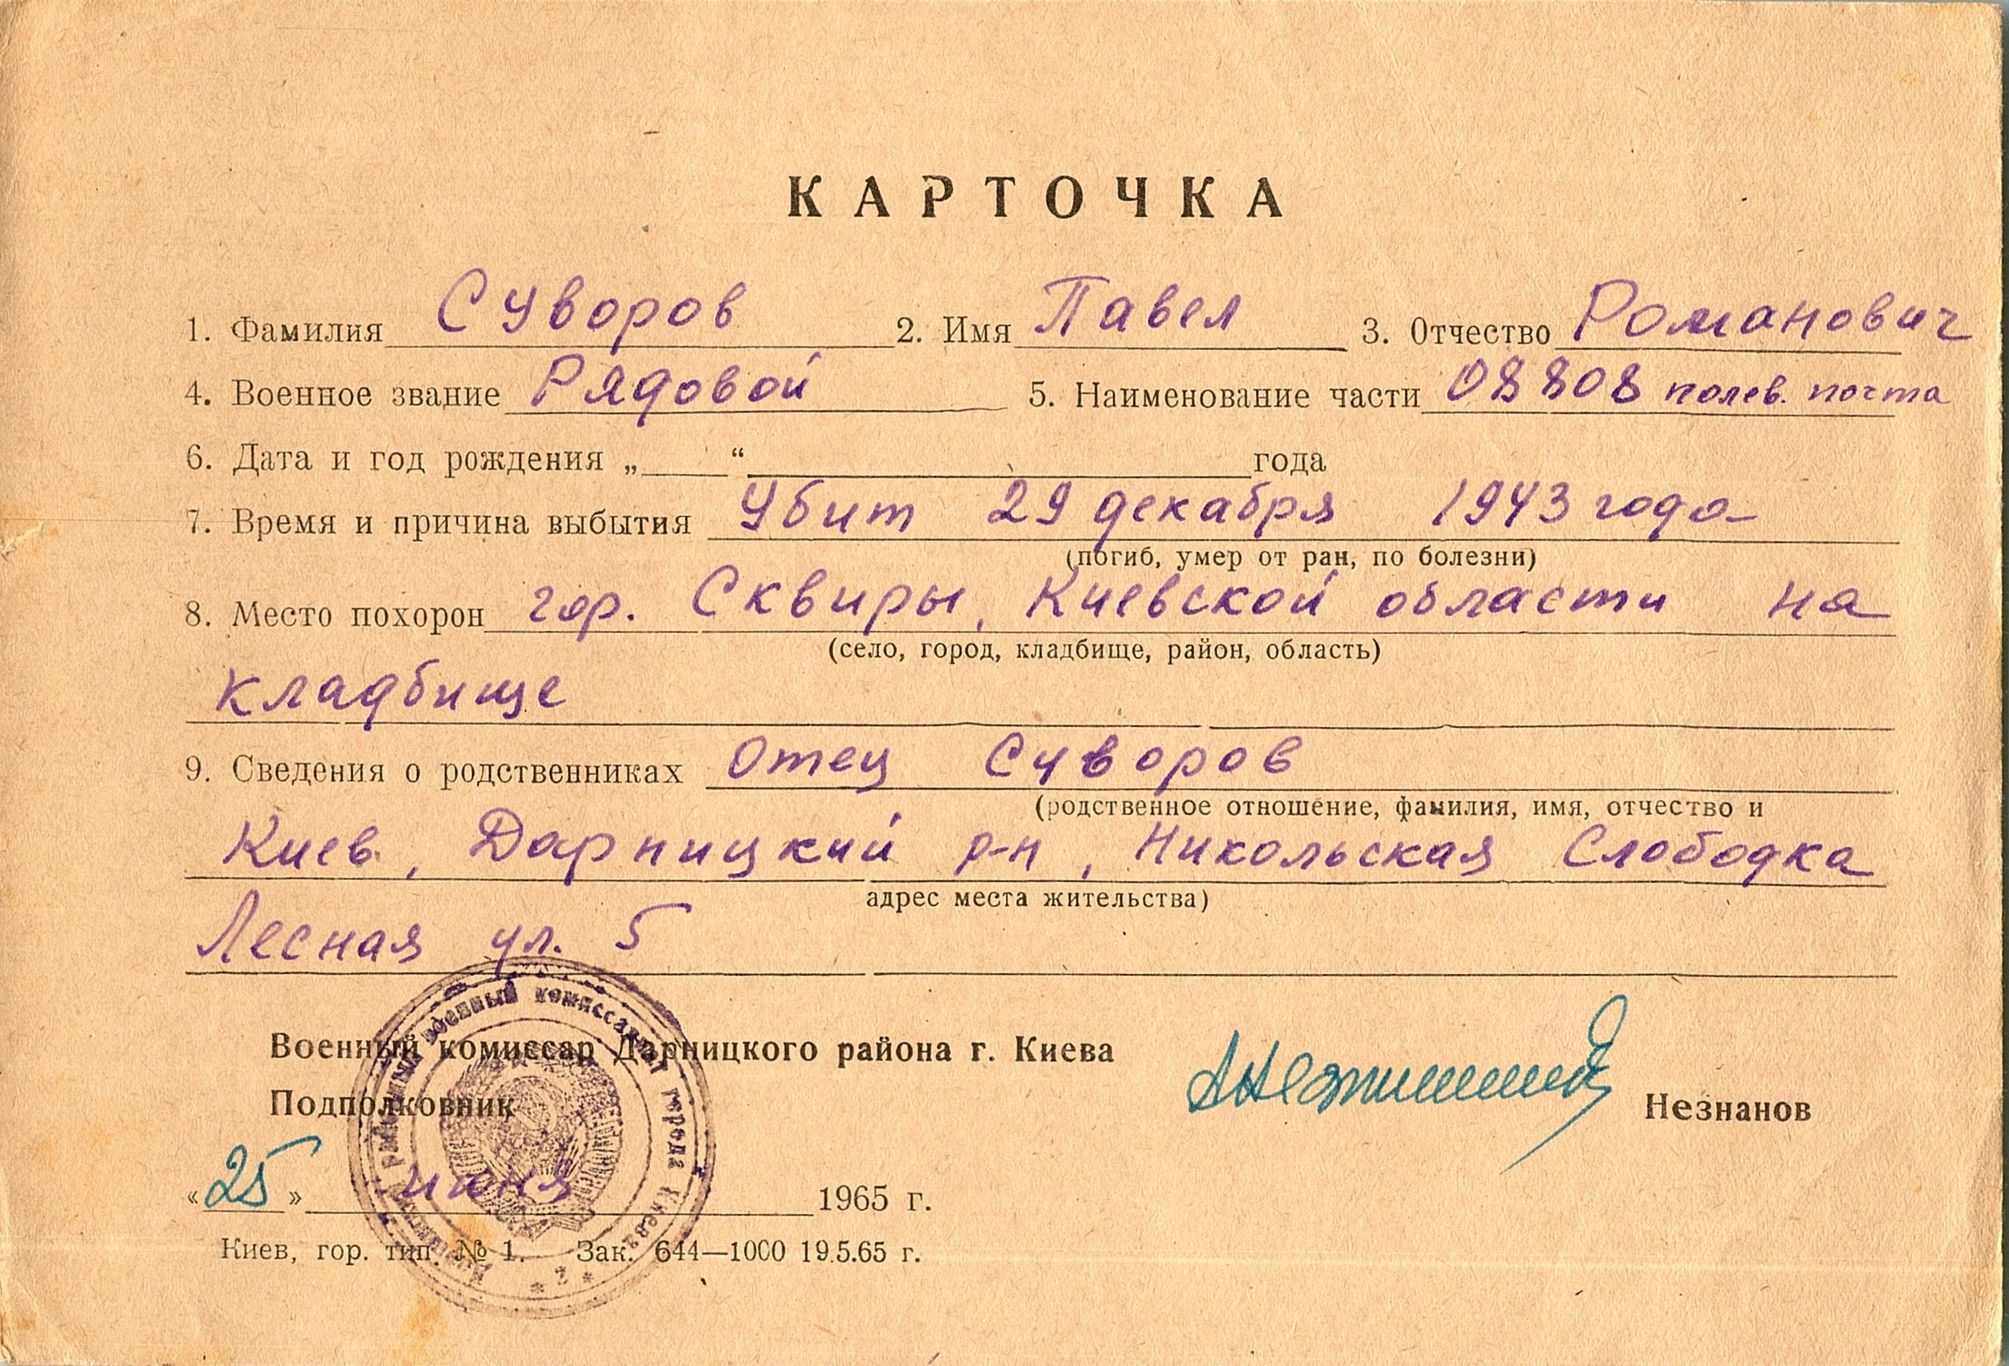 КАРТОЧКА
1. Фамилия Суворов 2. Имя Павел 3. Отчество Романович
4. Военное звание Рядовой 5. Наименование части 08808 полев. почта
6. Дата и год рождения „ “ года
7. Время и причина выбытия Убит 29 декабря 1943 года
(погиб, умер от ран, по болезни)
8. Место похорон гор. Сквиры, Киевской области на
(село, город, кладбище, район, область)
кладбище
9. Сведения о родственниках Отец Суворов
(родственное отношение, фамилия, имя, отчество и
Киев, Дарницкий р-н, Никольская Слободка
адрес места жительства)
Лесная ул. 5
Военный комиссар Дарницкого района г. Киева
Подполковник Незнанов
«25» июня 1965 г.
Киев, гор. тип. № 1. Зак. 644—1000 19.5.65 г.
районный военный комиссариат города Киева
* 2 *